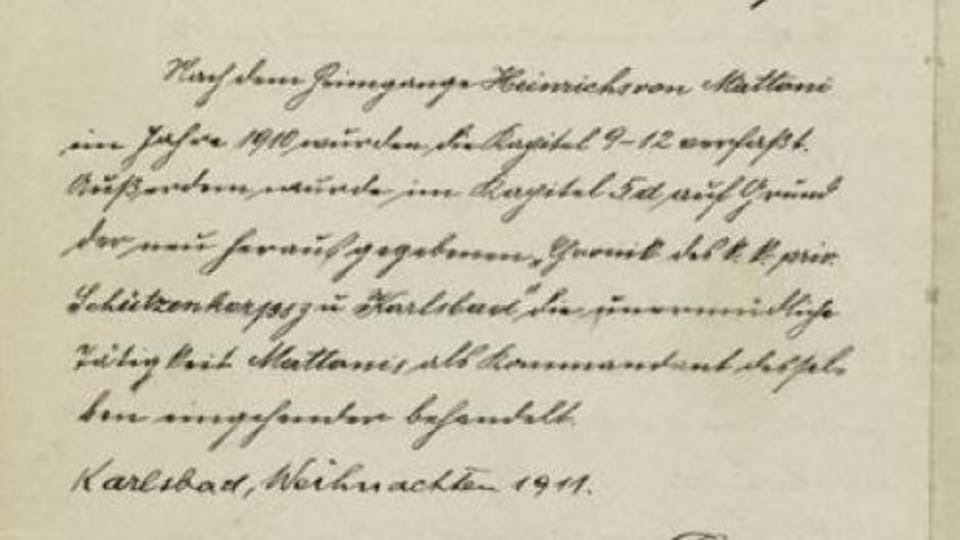 Nach dem Heimgange Heinrichs von Mattoni
im Jahre 1910 wurden die Kapitel 9-12 verfaßt.
Außerdem wurde im Kapitel 5d auf Grund
der neu herausgegebenen „Chronik des k. k. priv.
Schützenkorps zu Karlsbad" die unermüdliche
Tätigkeit Mattonis als Kommandant dessel-
ben eingehender behandelt.
Karlsbad, Weihnachten 1911.